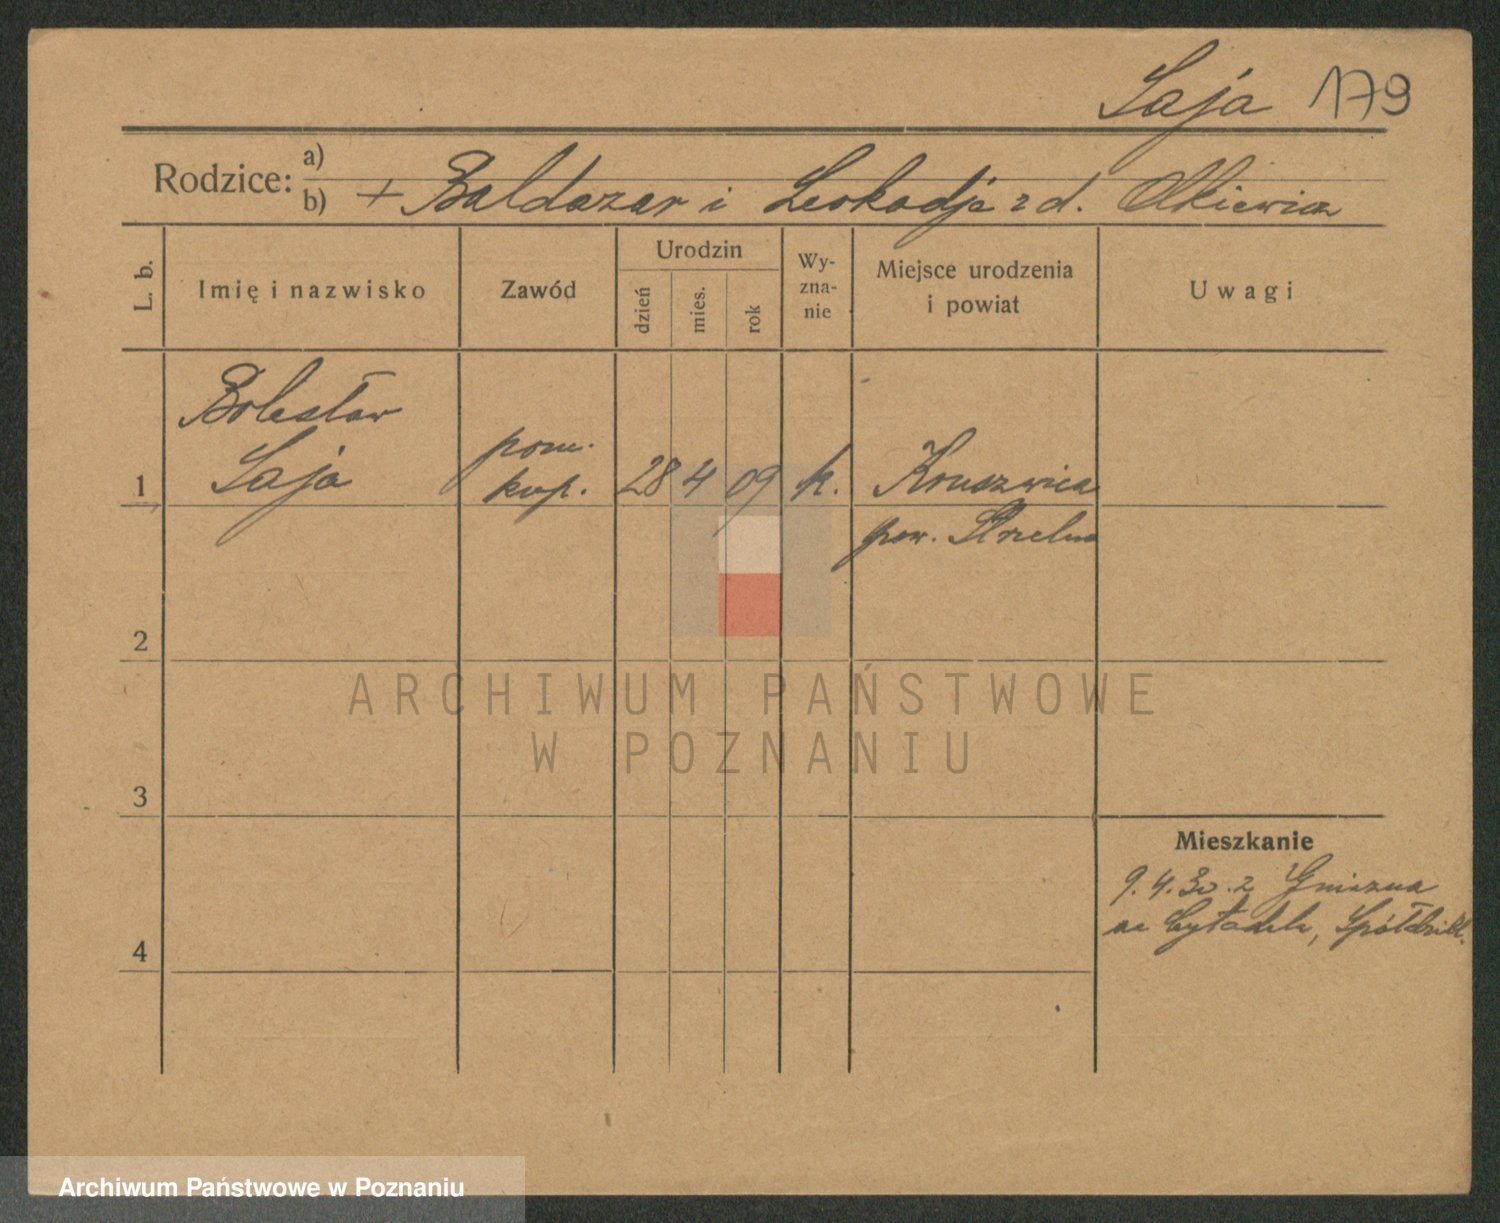 Saja 179
Rodzice: a)
b) + Baldazar i Leokadja z d. Olkiewicz
L. b.
Imię i nazwisko
Zawód
Urodzin
dzień
mies.
rok
Wy-
zna-
nie
Miejsce urodzenia
i powiat
Uwagi
Bolesław
Saja
pom.
kup.
1
28 4 09 k. Kruszwica
pow. Strzelno
2
ARCHIWUM PAŃSTWOWE
W POZNANIU
3
Mieszkanie
9.4.30. z Gniezna
na Cytadeli, Spółdziel.
4
Archiwum Państwowe w Poznaniu